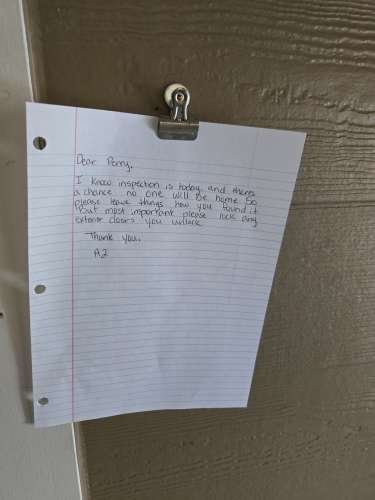 Dear Penny,
I know inspection is today, and theres
a chance no one will be home so
please leave things how you found it
But most important please lock any
exterior doors you unlock.
Thank you.
A2